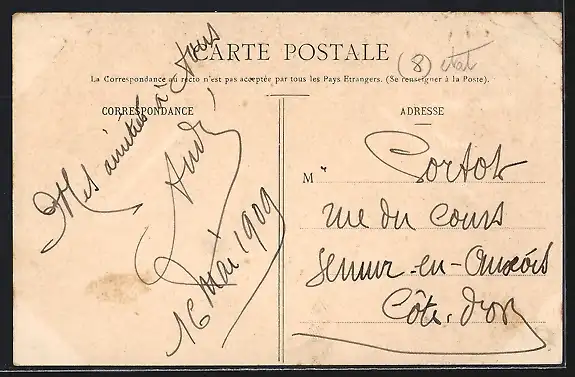 CARTE POSTALE
(8) état
La Correspondance au recto n'est pas acceptée par tous les Pays Etrangers. (Se renseigner à la Poste).
CORRESPONDANCE
ADRESSE
Mes amitiés à tous
André
16 Mai 1909
M r Cortot
rue du Cours
Semur-en-Auxois
Côte. d'or